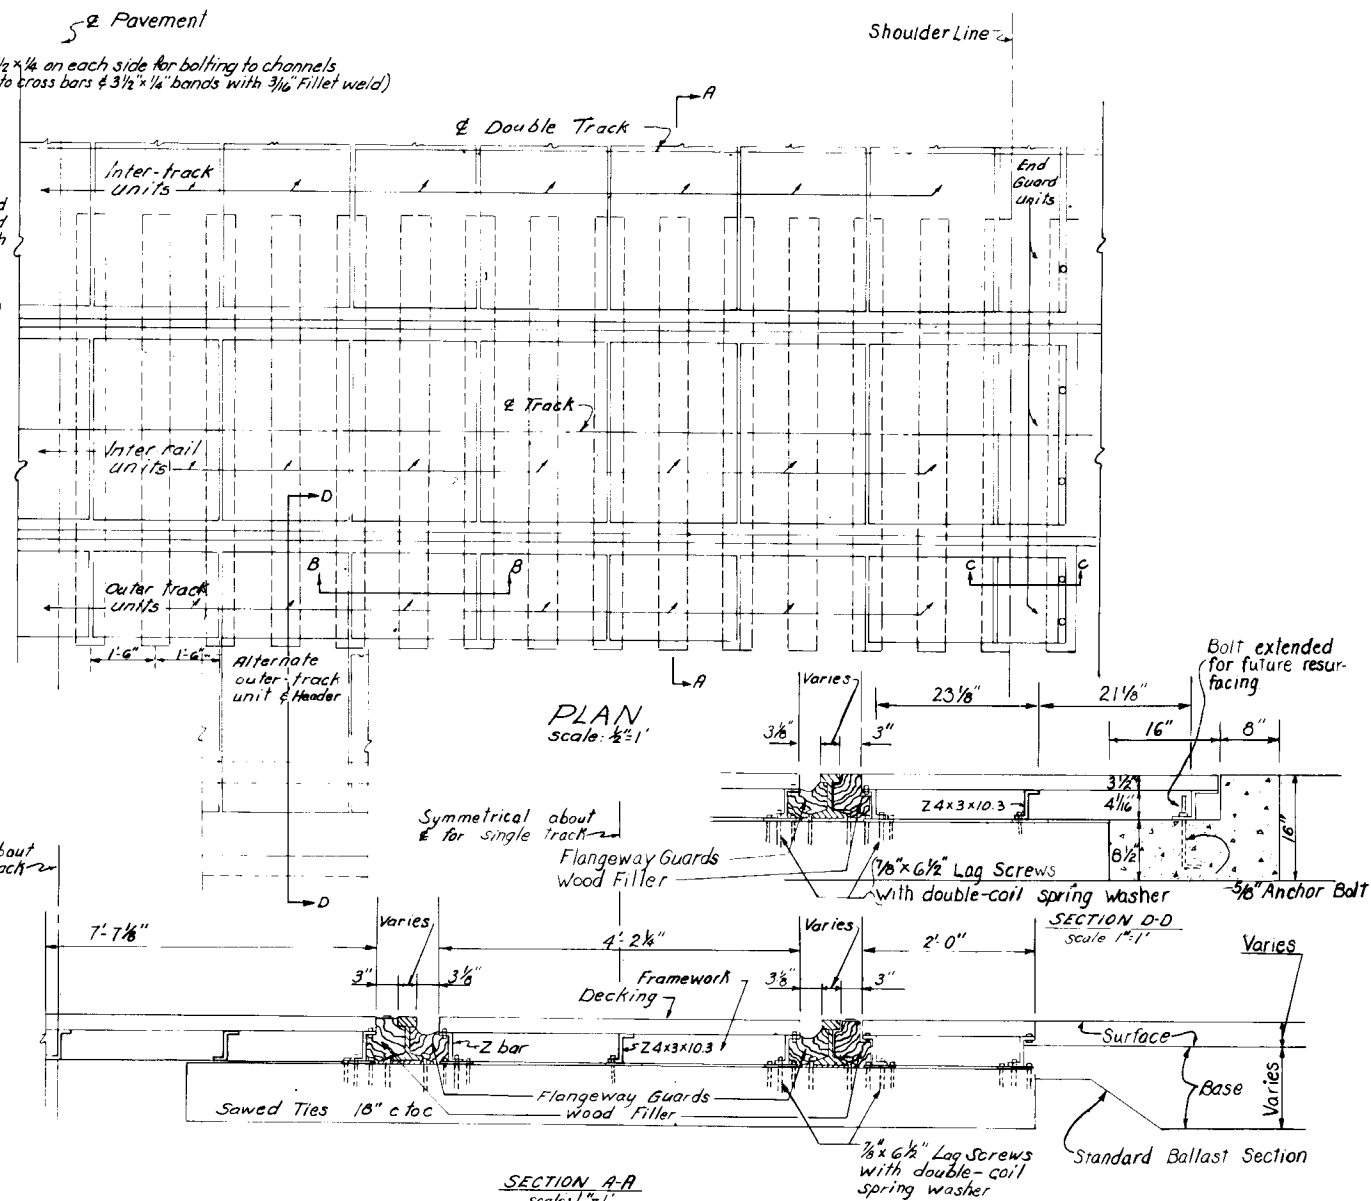 ℄ Pavement
½ x ¼ on each side for bolting to channels
to cross bars & 3½" x ¼" bands with 3/16" Fillet weld)
Shoulder Line
A
℄ Double Track
Inter-track
units
End
Guard
units
℄ Track
Inter rail
units
D
B
B
C
C
Outer track
units
1'-6"
1'-6"
Alternate
outer-track
unit & Header
A
PLAN
scale: ½"=1'
Varies
23⅛"
21⅛"
Bolt extended
for future resur-
facing
3⅛"
3"
16"
8"
3½"
4 1/16"
8½"
16"
Z 4 x 3 x 10.3
Symmetrical about
℄ for single track
Flangeway Guards
Wood Filler
⅞" x 6½" Lag Screws
with double-coil spring washer
⅝" Anchor Bolt
SECTION D-D
scale 1"=1'
D
7'-7⅛"
Varies
4'-2¼"
Varies
2'-0"
Varies
3"
3⅛"
Framework
Decking
3⅛"
3"
Z bar
Z 4 x 3 x 10.3
Surface
Base
Varies
Flangeway Guards
Wood Filler
Sawed Ties 18" c to c
⅞" x 6½" Lag Screws
with double-coil
spring washer
Standard Ballast Section
SECTION A-A
scale: 1"=1'